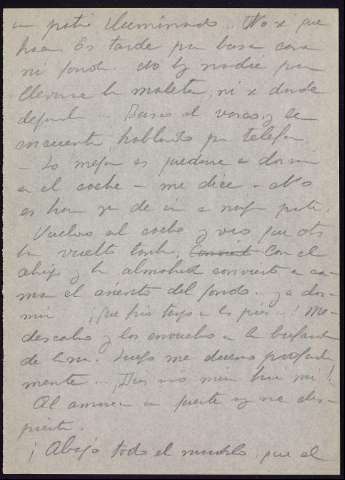 un patio iluminado. No se que
hora. Es tarde para buscar casa
ni fonda. No hay nadie para
llevarme la maleta, ni se donde
dejarla... Busco al vasco, y le
encuentro hablando por telefono
- Lo mejor es quedarse a dormir
en el coche - me dice - No
es hora ya de ir a ninguna parte.
Vuelvo al coche y veo que otros
han vuelto tambien. Con el
abrigo y la almohada convierto en ca-
ma el asiento del fondo y a dor-
mir. ¡Que frio tengo en los pies! Me
descalzo y los envuelvo en la bufanda
de lana. Luego me duermo profunda-
mente... ¡Dios mio
Al amanecer un fuerte me des-
pierta.
¡Abajo todo el mundo, que el